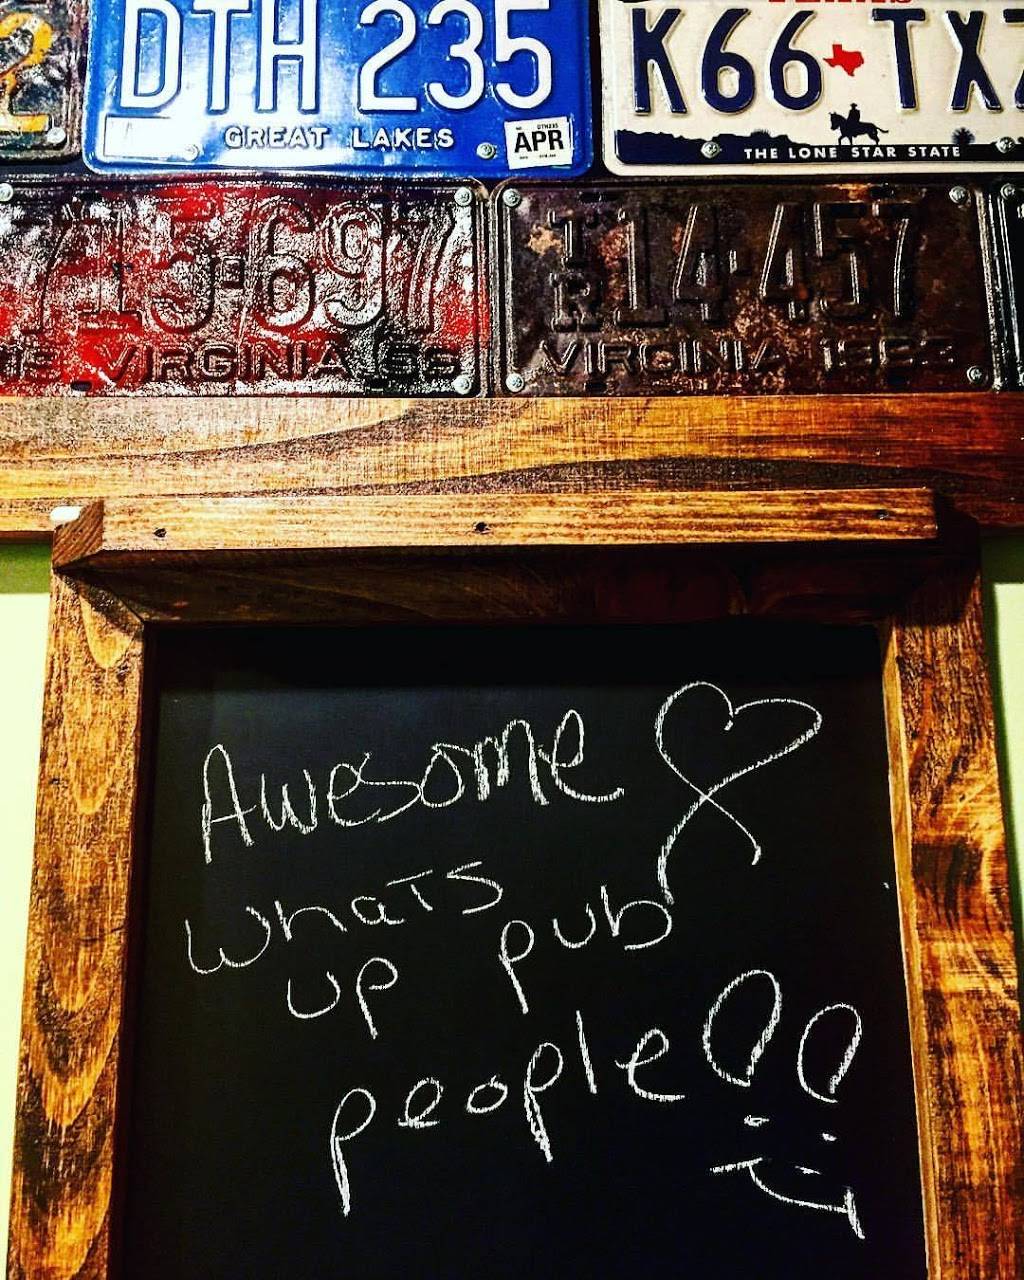 DTH 235
GREAT LAKES
APR
K66 TXZ
THE LONE STAR STATE
715-697
VIRGINIA 56
TR 14-457
VIRGINIA
Awesome
whats
up pub
people!!